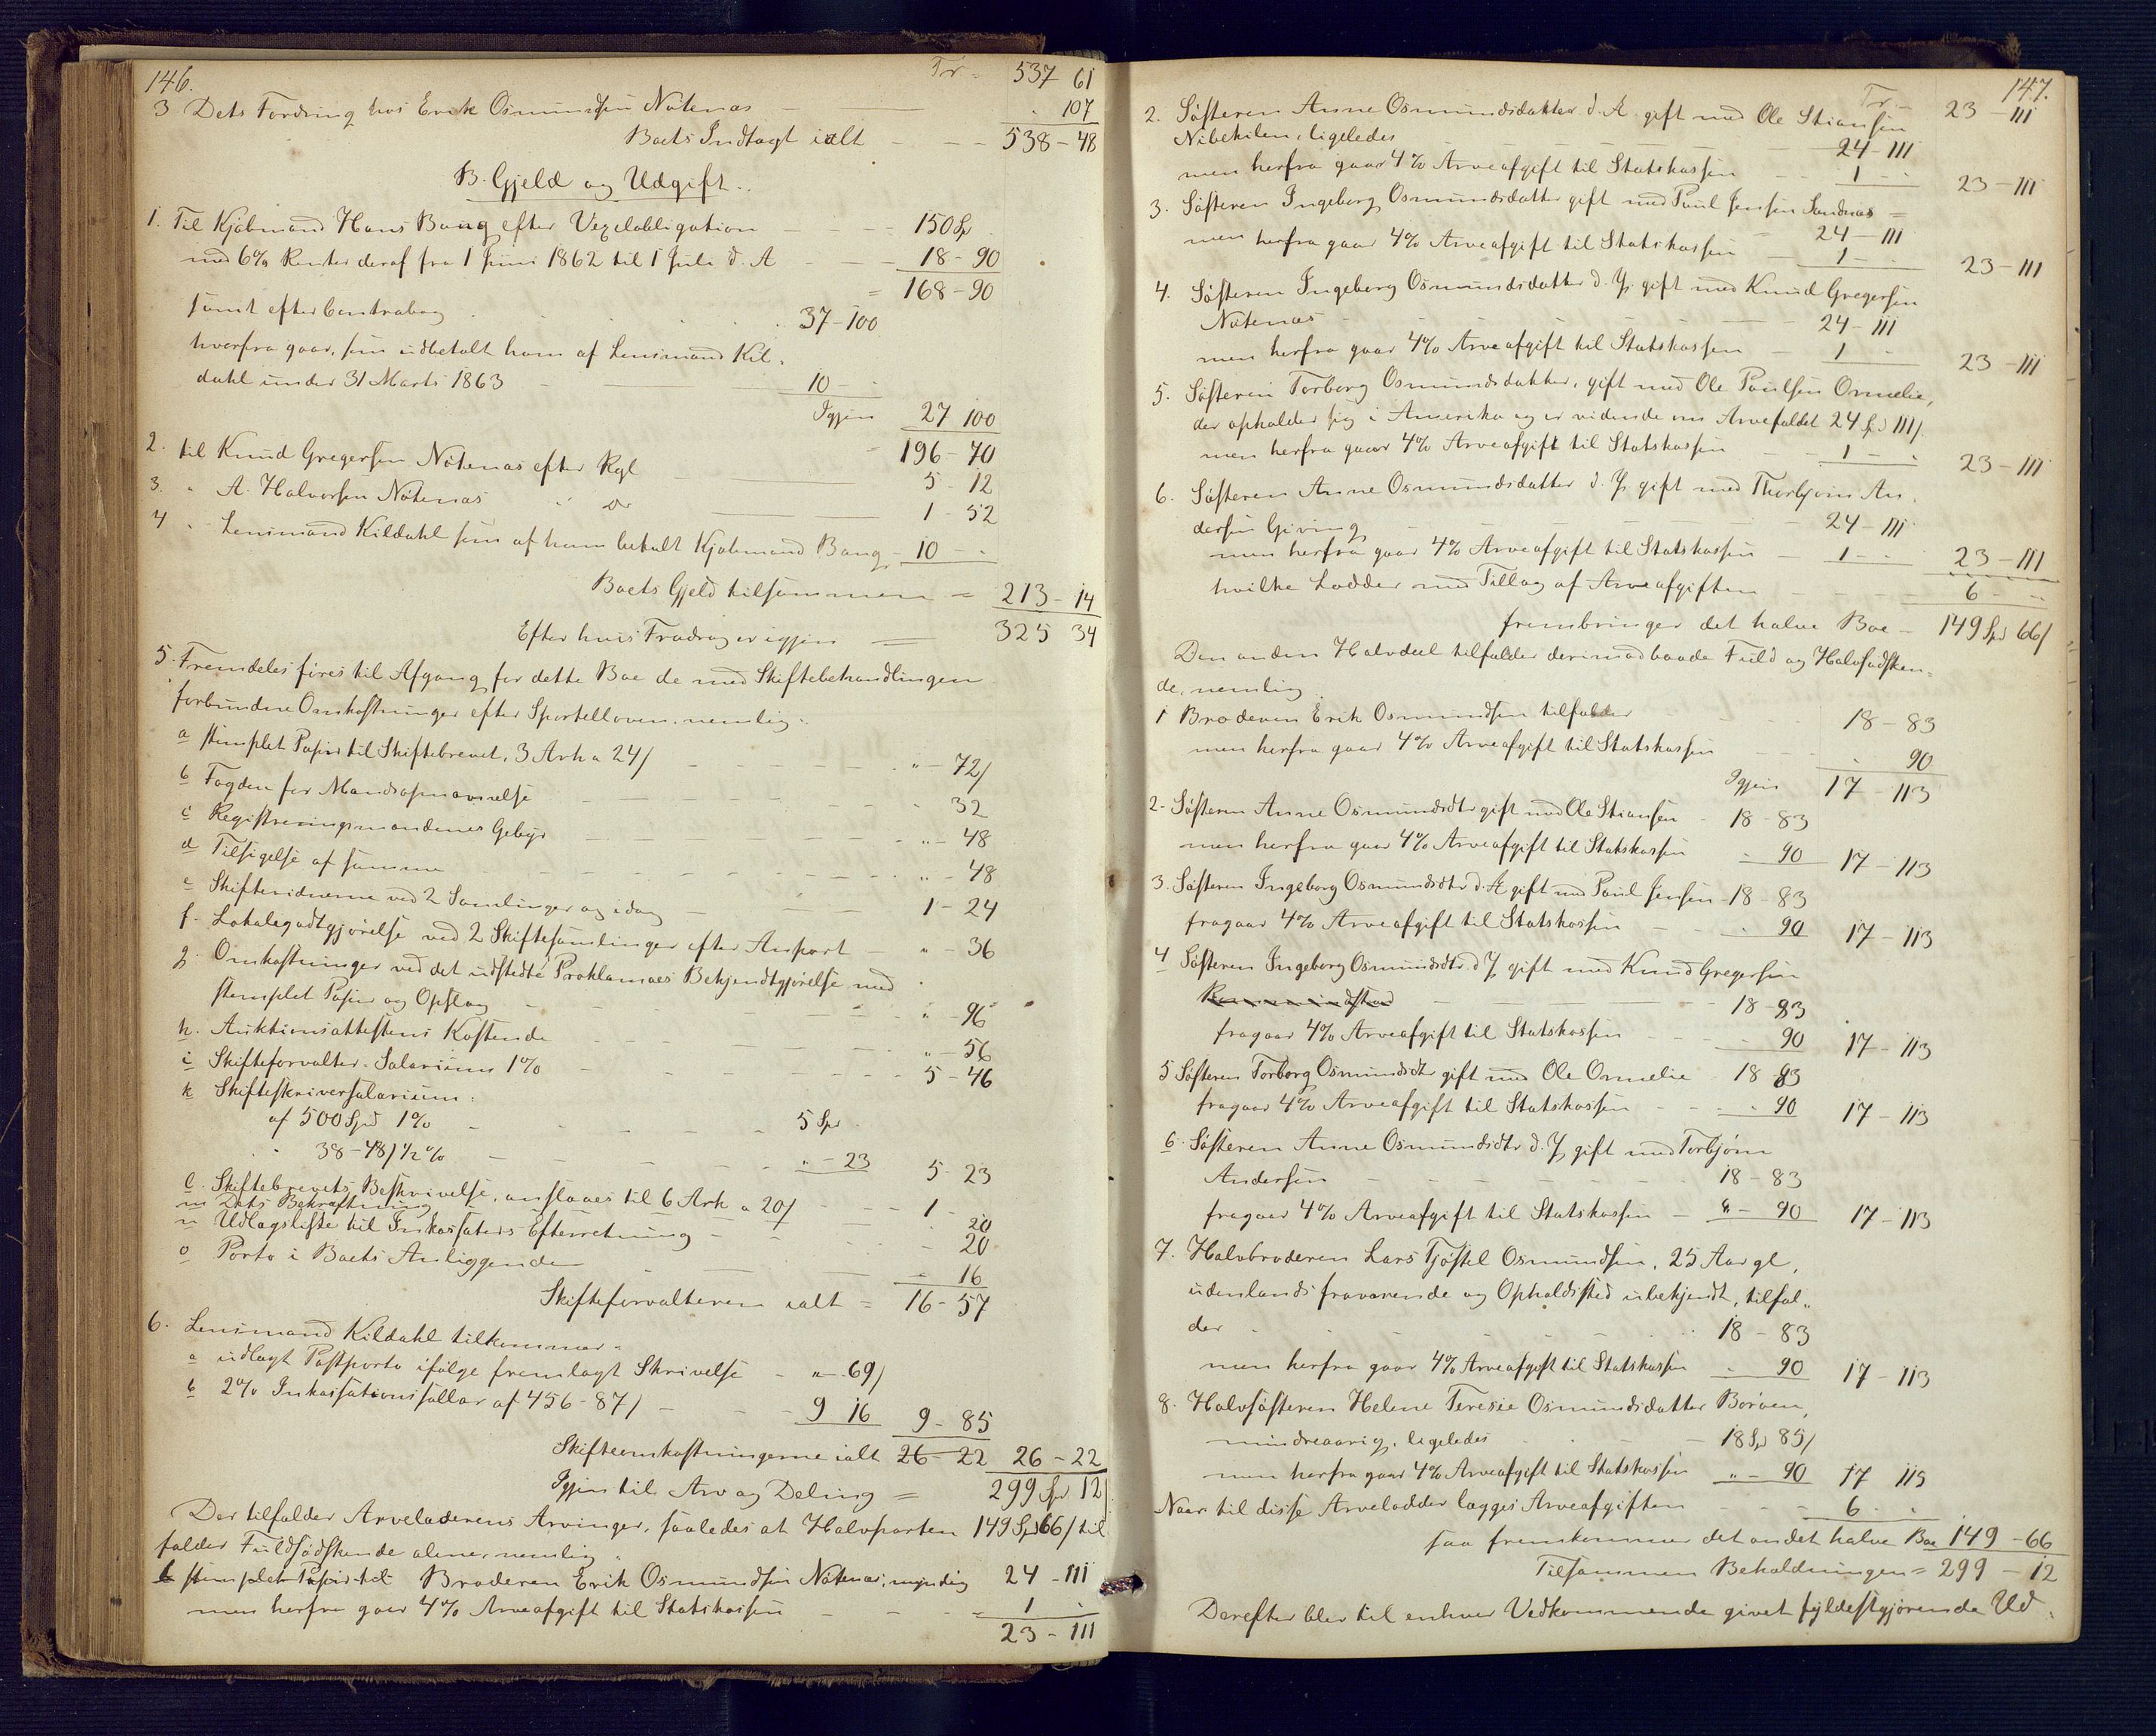 146.
Tr. 537 61
3 Dets Fordring hos Erik Osmundsen Nøtenæs — . 107
Boets Indtægt ialt — 538 - 48
B. Gjeld og Udgift.
1. Til Kjøbmand Hans Bang efter Vexelobligation — 150 Sp
med 6% Renter deraf fra 1 Juni 1862 til 1 Juli d. A — 18 - 90
= 168 - 90
samt efter Contrabog . 37 - 100
hvorfra gaar, som udbetalt ham af Lensmand Kil-
dahl under 31 Marts 1863 — 10 - .
Igjen 27 100
196 - 70
2. til Knud Gregersen Nøtenæs efter Rgl — 5 - 12
3. " A. Halvorsen Nøtenæs " do — 1 - 52
4 " Lensmand Kildahl som af ham betalt Kjøbmand Bang - 10 - .
Boets Gjeld tilsammen = 213 - 14
Efter hvis Fradrag er igjen = 325 34
5. Fremdeles føres til Afgang for dette Boe de med Skiftebehandlingen
forbundne Omkostninger efter Sportelloven, nemlig:
a stemplet Papir til Skiftebrevet, 3 Ark a 24/ — " - 72/
b Fogden for Mandsopnævnelse — " 32
c Registreringsmændenes Gebyr — " - 48
d Tilsigelse af samme — " - 48
e Skiftevidnerne ved 2 Samlinger og idag — 1 - 24
f. Lokalegodtgjørelse ved 2 Skiftesamlinger efter Anport — " - 36
g. Omkostninger ved det udstedte Proklamaes Bekjendtgjørelse med
stemplet Papir og Opslag — " - 96
h. Auktionsattestens Kostende — " - 56
i Skifteforvalter-Salarium 1% — 5 - 46
k Skifteskriversalarium:
af 500 Spd 1% — 5 Spd
" 38 - 48/ ½% — " - 23 5 - 23
l. Skiftebrevets Beskrivelse, anslaaes til 6 Ark a 20/ — 1 - .
m Dets Bekræftning — . 20
n Udlagsliste til Inkassators Efterretning — - 20
o Porto i Boets Anliggende — 16
Skifteforvalteren ialt = 16 - 57
6. Lensmand Kildahl tilkommer:
a udlagt Postporto ifølge fremlagt Skrivelse - " - 69/
b 2% Inkassations sallar af 456 - 87/ — 9 16 9 - 85
Skifteomkostningerne ialt 26 - 22 26 - 22
Igjen til Arv og Deling = 299 Sp 12/
Der tilfalder Arveladerens Arvinger, saaledes at Halvparten 149 Spd 66/ til
falder Fuldsødskende alene, nemlig:
b stemplet Papir til Broderen Erik Osmundsen Nøtenæs, myndig 24 - 111
men herfra gaar 4% Arveafgift til Statskassen — 1 .
23 - 111
147.
Tr. — 23 - 111
2. Søsteren Anne Osmundsdatter d. Æ. gift med Ole Stiansen
Nibekilen, ligeledes — 24 - 111
men herfra gaar 4% Arveafgift til Statskassen — 1 - . 23 - 111
3. Søsteren Ingeborg Osmundsdatter gift med Paul Jensen Sandnæs =
24 - 111
men herfra gaar 4% Arveafgift til Statskassen — 1 - . 23 - 111
4. Søsteren Ingeborg Osmundsdatter d. Y. gift med Knud Gregersen
Nøtenæs — 24 - 111
men herfra gaar 4% Arveafgift til Statskassen — 1 - 23 - 111
5. Søsteren Torborg Osmundsdatter, gift med Ole Paulsen Ormelie,
der opholder sig i Amerika og er vidende om Arvefaldet 24 Spd 111/.
men herfra gaar 4% Arveafgift til Statskassen — 1 - . 23 - 111
6. Søsteren Anne Osmundsdatter d. Y. gift med Thorbjørn An-
dersen Giving — 24 - 111
men herfra gaar 4% Arveafgift til Statskassen — 1 - . 23 - 111
hvilke Lodder med Tillæg af Arveafgiften — 6 - "
frembringer det halve Boe — 149 Spd 66/
Den anden Halvdeel tilfalder derimod baade Fuld og Halvsødsken-
de, nemlig:
1 Broderen Erik Osmundsen tilfalder 18 - 83
men herfra gaar 4% Arveafgift til Statskassen — . 90
Igjen 17 - 113
2 - Søsteren Anne Osmundsdtr gift med Ole Stiansen - 18 - 83
men herfra gaar 4% Arveafgift til Statskassen . 90 17 - 113
3. Søsteren Ingeborg Osmundsdtr d. Æ gift med Paul Jensen - 18 - 83
fragaar 4% Arveafgift til Statskassen — . 90 17 - 113
4 Søsteren Ingeborg Osmundsdtr d. Y gift med Knud Gregersen
18 - 83
fragaar 4% Arveafgift til Statskassen — . 90 17 - 113
5 Søsteren Torborg Osmundsdtr gift med Ole Ormelie 18 - 83
fragaar 4% Arveafgift til Statskassen — . 90 17 - 113
6. Søsteren Anne Osmundsdtr d. Y. gift med Torbjørn
Andersen — 18 - 83
fragaar 4% Arveafgift til Statskassen — " - 90 17 - 113
7. Halvbroderen Lars Tjøstel Osmundsen, 25 Aar gl,
udenlands fraværende og Opholdssted ubekjendt, tilfal-
der — 18 - 83
men herfra gaar 4% Arveafgift til Statskassen . 90 17 - 113
8. Halvsøsteren Helene Teresie Osmundsdatter Børøen,
mindreaarig, ligeledes — 18 Spd 85/
men herfra gaar 4% Arveafgift til Statskassen " - 90 17 113
Naar til disse Arvelodder lægges Arveafgiften — 6 .
saa fremkommer det andet halve Boe 149 - 66
Tilsammen Beholdningen = 299 - 12
Derefter blev til enhver Vedkommende givet fyldestgjørende Ud-